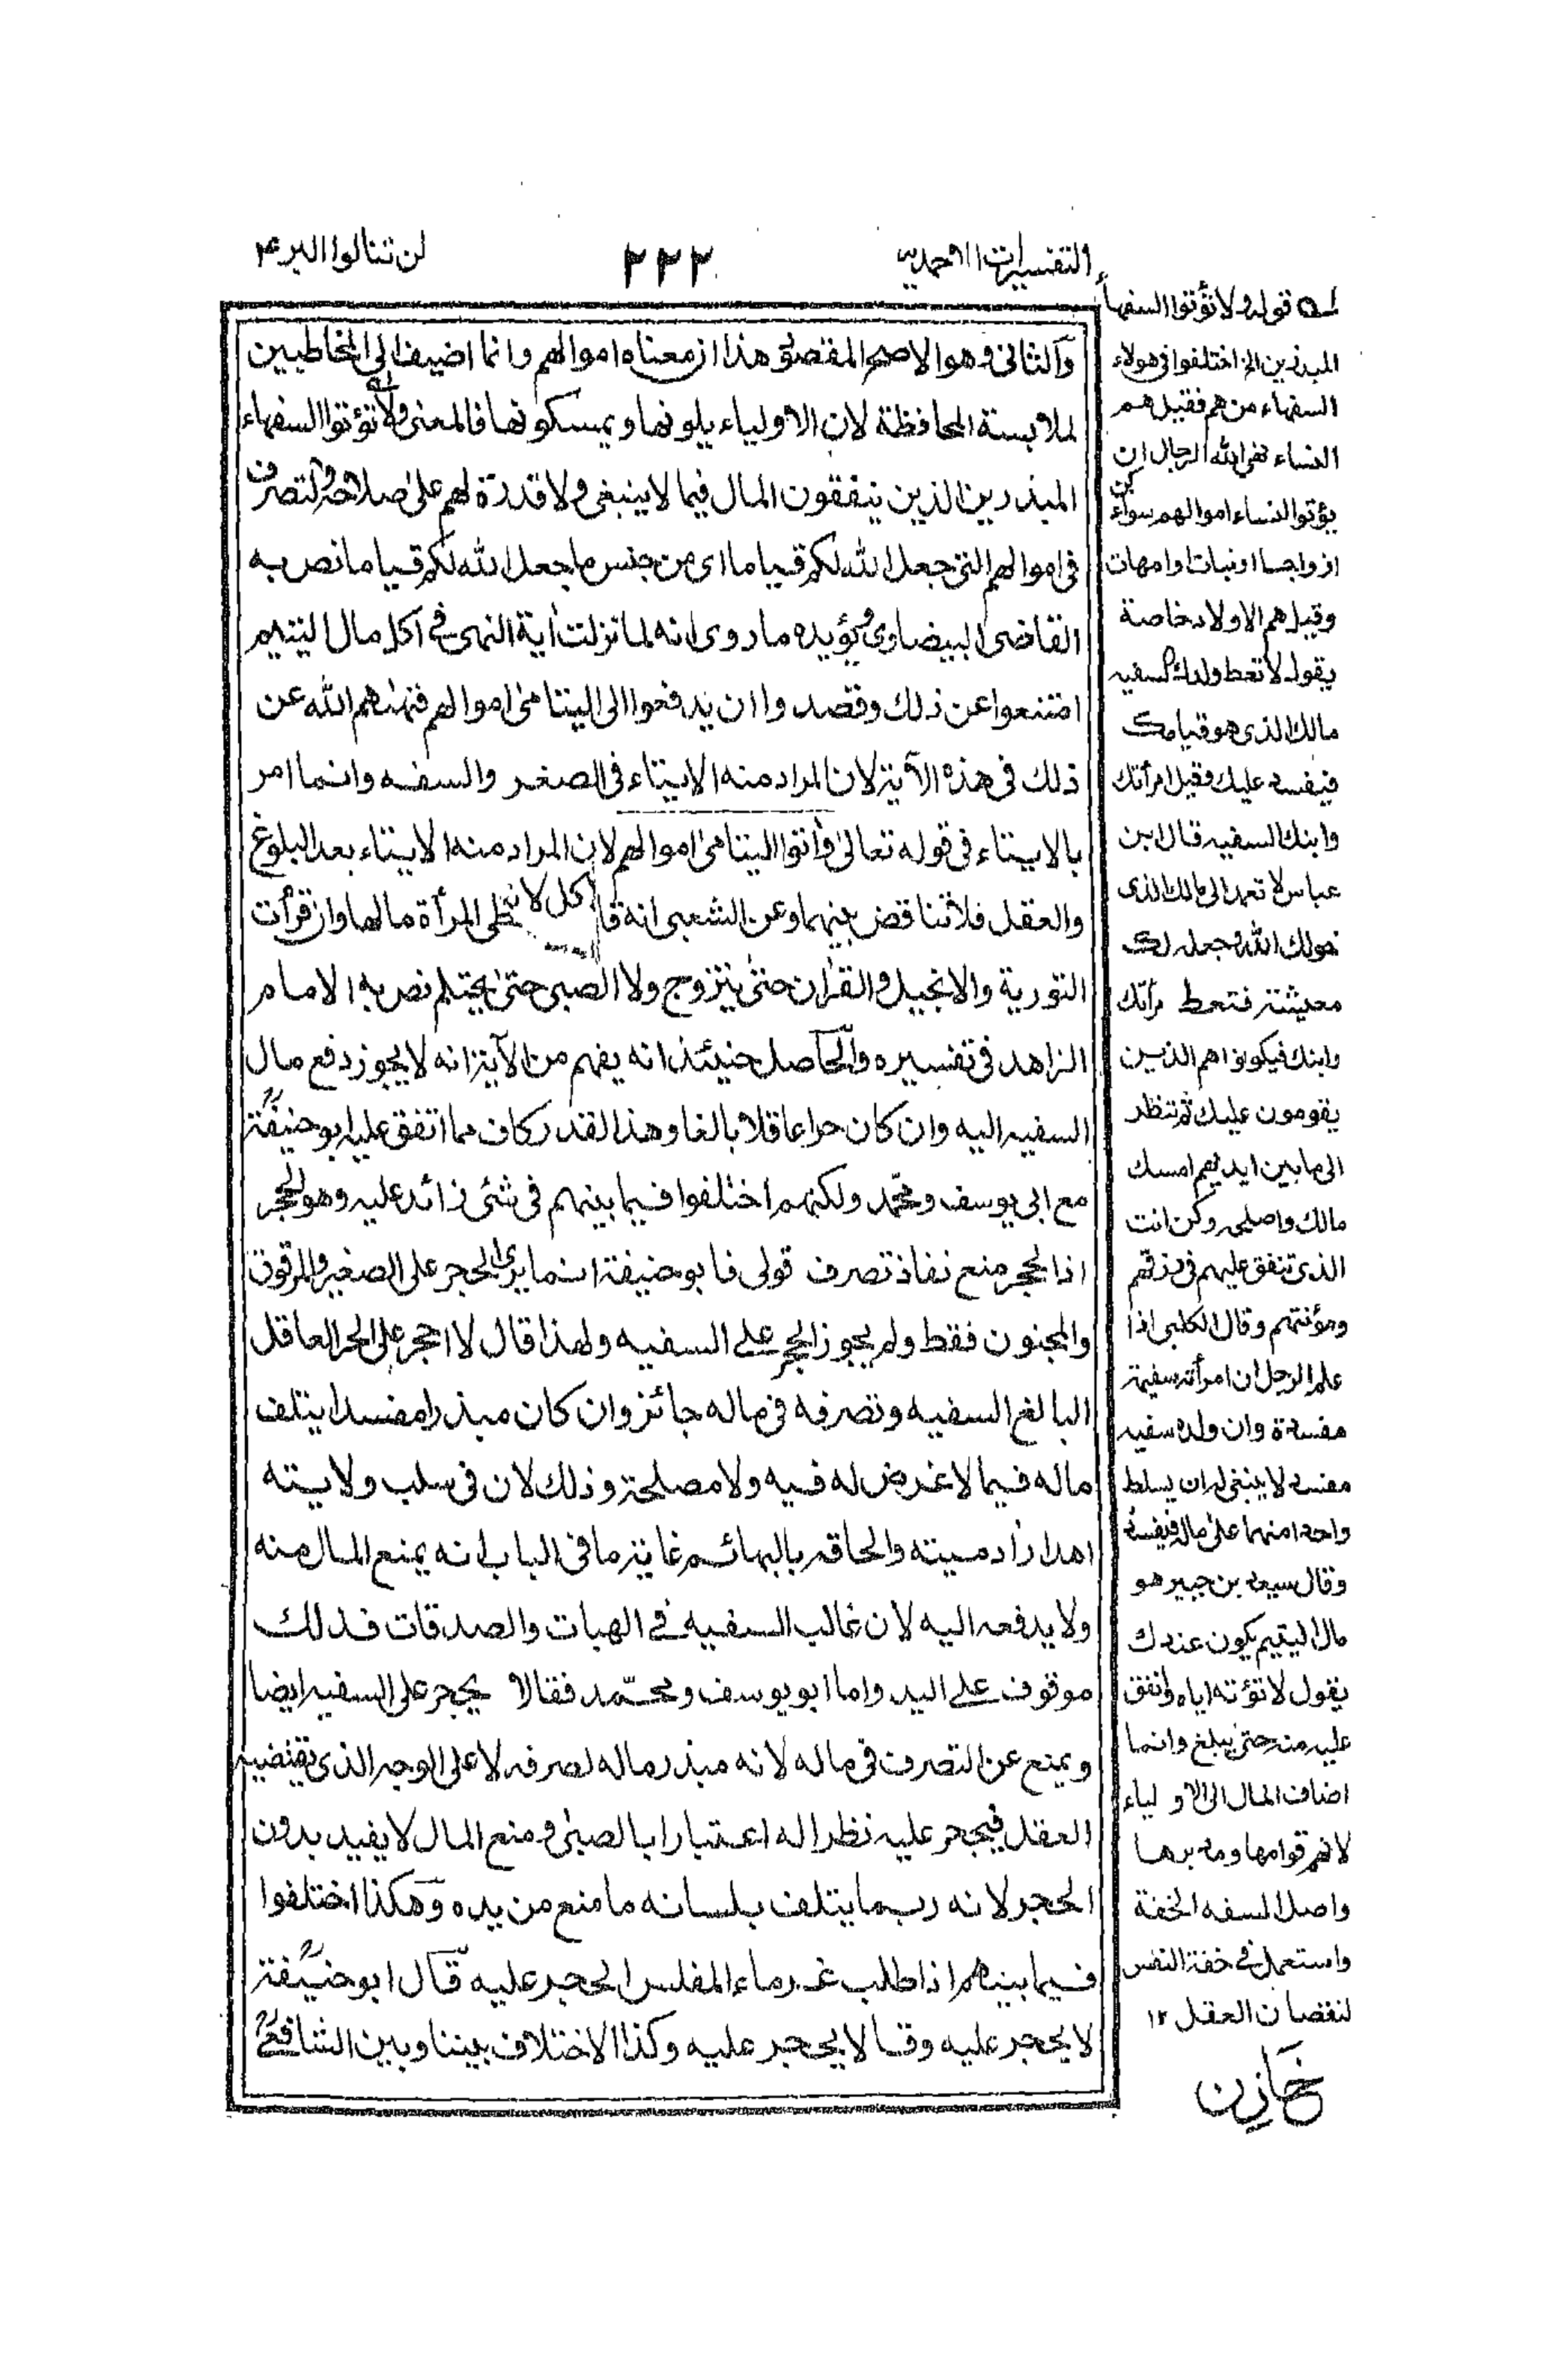 التفسيرات الاحمديه
٢٢٢
لن تنالوا البر ۴
وآلثانى وهو الاصح المقصود هذا ان معناه اموالهم وانما اضيف الى المخاطبين
لملابسة المحافظة لان الاولياء يلونها ويمسكونها فالمعنى ولا تؤتوا السفهاء
المبذرين الذين ينفقون المال فيما لا ينبغى ولا قدرة لهم على اصلاحه والتصرف
فى اموالهم التى جعل الله لكم قياما اى من جنس ما جعل الله لكم قياما نص به
القاضى البيضاوى ويؤيده ما روى انه لما نزلت اٰية النهى فى اكل مال اليتيم
امتنعوا عن ذلك وقصدوا ان يدفعوا الى اليتامىٰ اموالهم فنهٰهم الله عن
ذلك فى هذه الآية لان المراد منه الايتاء فى الصغر والسفه وانما امر
بالايتاء فى قوله تعالىٰ واٰتوا اليتامىٰ اموالهم لان المراد منه الايتاء بعد البلوغ
والعقل فلا تناقض بينهما وعن الشعبى انه قال كل لا تعطى المرأة مالها وان قرأت
التورية والانجيل والقراٰن حتىٰ يتزوج ولا الصبى حتىٰ يحتلم نص به الامام
الزاهد فى تفسيره وآلحاصل حينئذ انه يفهم من الآية انه لا يجوز دفع مال
السفيه اليه وان كان حرا عاقلا بالغا وهذا القدر كاف مما اتفق عليه ابو حنيفةؒ
مع ابى يوسف ومحمّد ولكنهم اختلفوا فيما بينهم فى شئى زائد عليه وهو الحجر
اذا لحجر منع نفاذ تصرف قولى فابو حنيفة انما يرى الحجر على الصغير والمرقوق
والمجنون فقط ولم يجوز الحجر على السفيه ولهذا قال لا احجر على الحر العاقل
البالغ السفيه وتصرفه فى ماله جائز وان كان مبذرا مفسدا يتلف
ماله فيما لا غرض له فيه ولا مصلحة وذلك لان فى سلب ولايته
اهدار اٰدميته والحاقه بالبهائم غاية ما فى الباب انه يمنع المال منه
ولا يدفعه اليه لان غالب السفيه فى الهبات والصدقات فذلك
موقوف على اليد واما ابو يوسف ومحمّد فقالا يحجر على السفيه ايضا
ويمنع عن التصرف فى ماله لانه مبذر ماله لصرفه لا على الوجه الذى يقتضيه
العقل فيحجر عليه نظرا له اعتبارا بالصبى ومنع المال لا يفيد بدون
الحجر لانه ربما يتلف بلسانه ما منع من يده وهكذا اختلفوا
فيما بينهم اذا طلب غرماء المفلس الحجر عليه قال ابو حنيفةؒ
لا يحجر عليه وقالا يحجر عليه وكذا الاختلاف بيننا وبين الشافعىؒ
لـه قوله ولا تؤتوا السفهاء
المبذرين الخ اختلفوا فى هولاء
السفهاء من هم فقيل هم
النساء نهى الله الرجال ان
يؤتوا النساء اموالهم سواء كن
ازواجا او بنات او امهات
وقيل هم الاولاد خاصة
يقول لا تعط ولدك السفيه
مالك الذى هو قيامك
فيفسده عليك وقيل امرأتك
وابنك السفيه قال ابن
عباس لا تعمد الى مالك الذى
خولك الله وجعله لك
معيشة فتعط امرأتك
وابنك فيكونوا هم الذين
يقومون عليك ثم تنظر
الى ما بين ايديهم امسك
مالك واصلحه وكن انت
الذى تنفق عليهم فى رزقهم
ومؤنتهم وقال الكلبى اذا
علم الرجل ان امرأته سفيهة
مفسدة وان ولده سفيه
مفسد لا ينبغى له ان يسلط
واحدا منهما على ماله فيفسده
وقال سعيد بن جبير هو
مال اليتيم يكون عندك
يقول لا تؤته اياه وانفق
عليه منه حتىٰ يبلغ وانما
اضاف المال الى الاولياء
لانهم قوامها ومدبرها
واصل السفه الخفة
واستعمل فى خفة النفس
لنقصان العقل ١٢
خازن